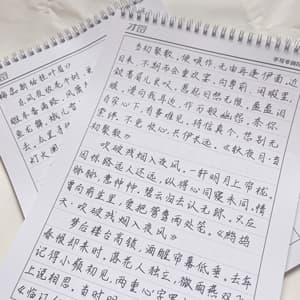 东风夜放花千树。
雕车香路。凤箫
鱼龙舞。蛾儿
去。众里寻
灯火阑
当初聚散，便唤作、无由再逢伊面。近
日来、不期而会重欢宴。向尊前、闲暇里，
敛着眉儿长叹。惹起旧愁无限。盈盈泪
眼，漫向我耳边，作万般幽怨。奈你
自家心下，有事难见。待信真个，恁别无
萦绊。不免收心，共伊长远。《秋夜月·当
初聚散》
吹破残烟入夜风。一轩明月上帘栊。
因惊路远人还远，纵得心同寝未同。情
脉脉，意忡忡。碧云归去认无踪。只应
曾向前生里，爱把鸳鸯两处笼。《鹧鸪
天·吹破残烟入夜风》
梦后楼台高锁，酒醒帘幕低垂。去年
春恨却来时。落花人独立，微雨燕双飞。
记得小蘋初见，两重心字罗衣。
上说相思。当时明
《临江